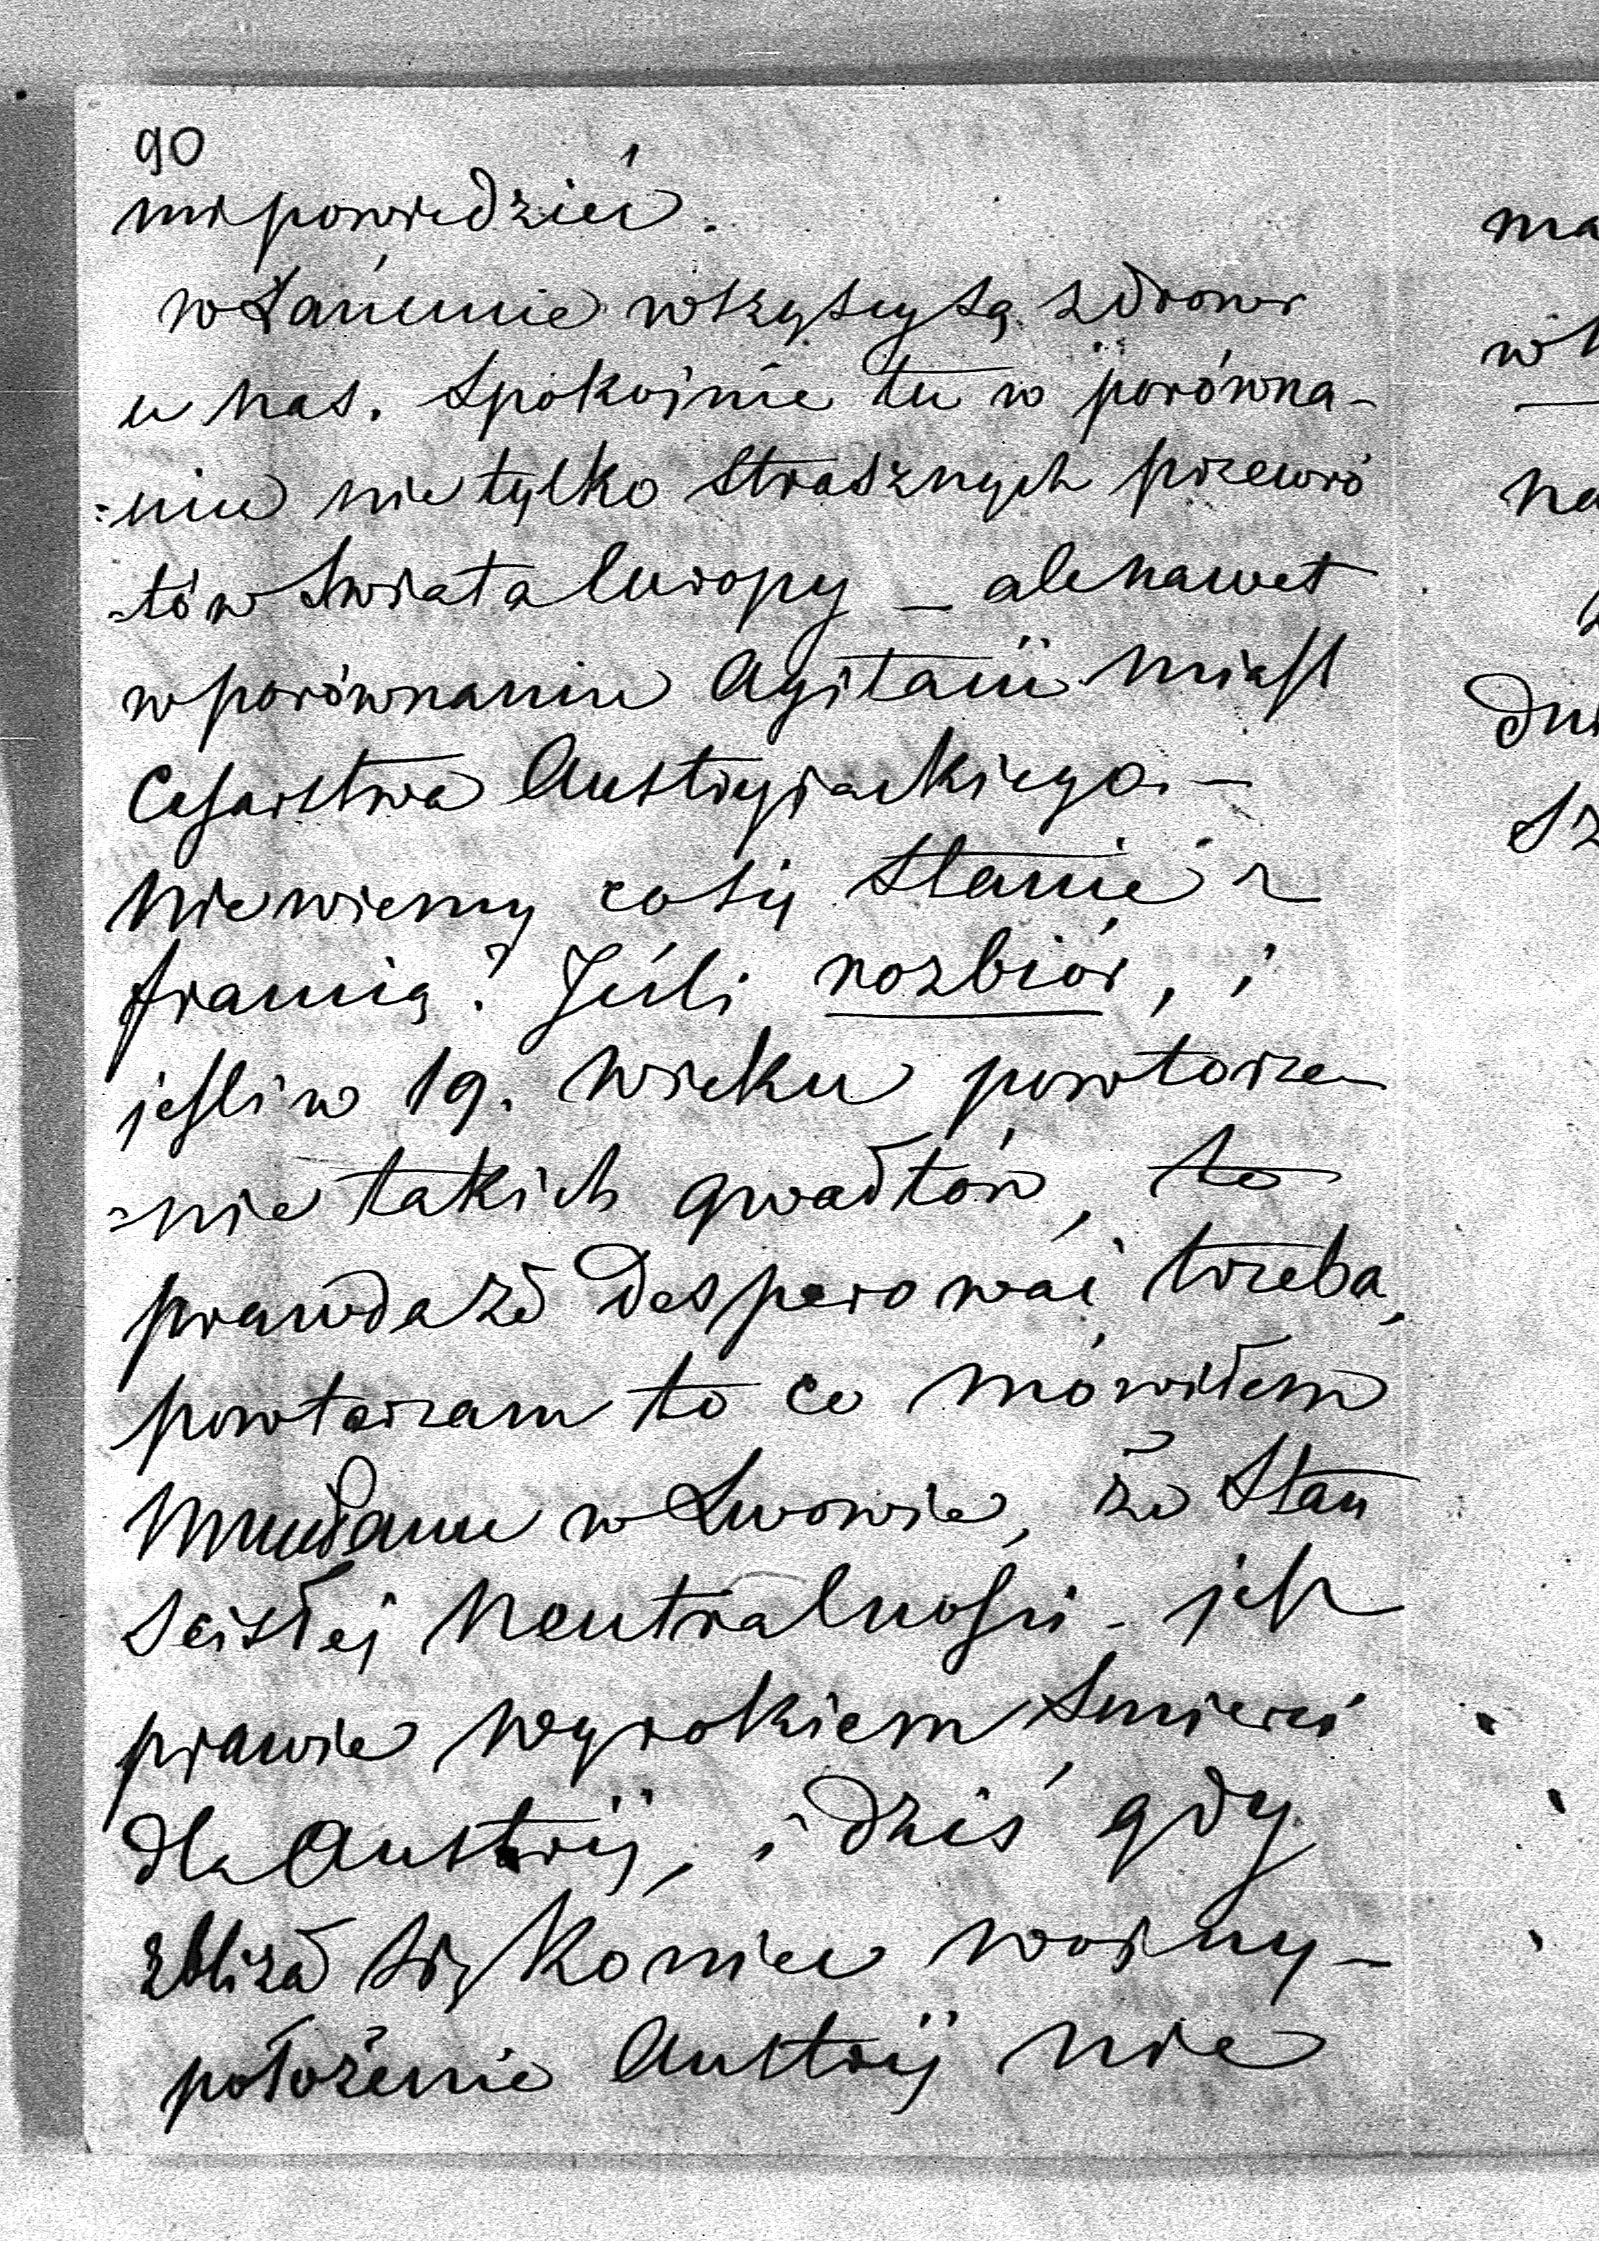 90
mi powiedzieć.
w Łańcucie wszyscy są zdrowi
u nas. Spokojnie tu w porówna-
=niu nie tylko strasznych przewró
=tów świata Europy – ale nawet
w porównaniu Agitacii miast
Cesarstwa Austryjackiego. –
Nie wiemy co się stanie z
francią? Jeśli rozbiór, i
jeśli w 19. wieku powtorze-
=nie takich gwałtów, to
prawda że desperować trzeba,
powtarzam to co mówiłem
w Lwowie, że stan
scisłej Neutralności – jest
prawie wyrokiem śmierci
dla Austrij, i dziś gdy
zbliża się koniec wojny –
położenie Austrij nie
ma
na